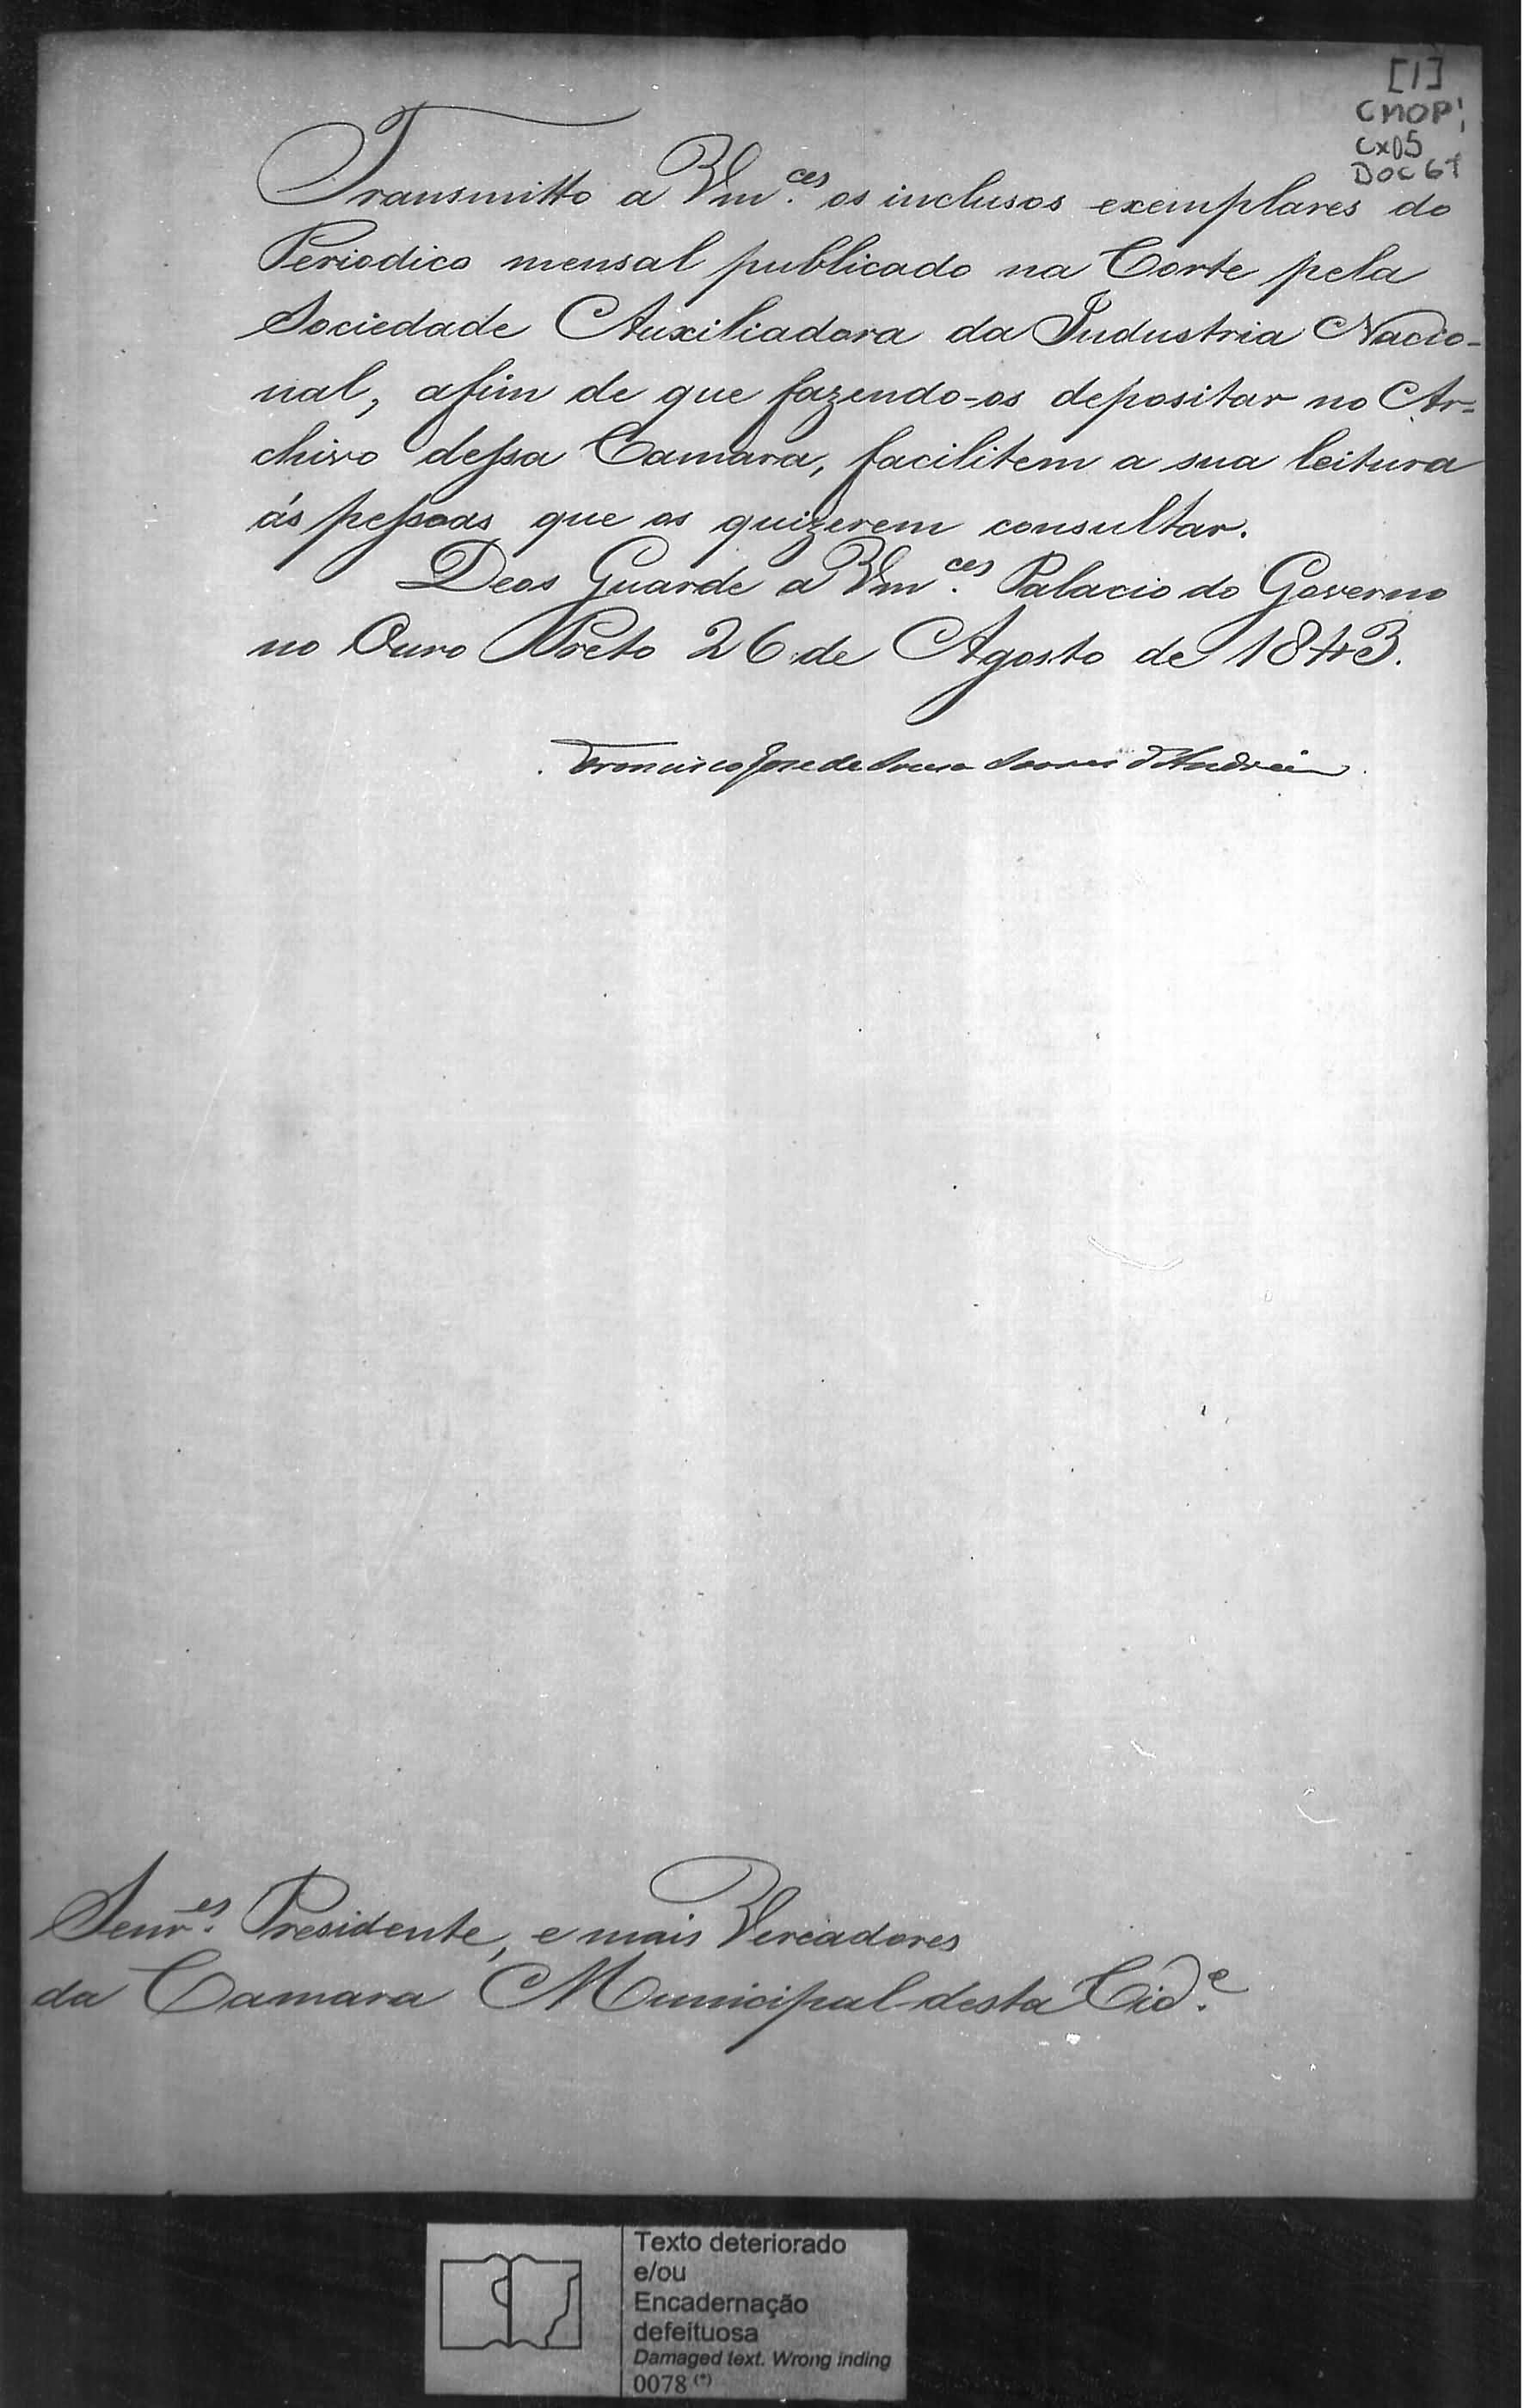 [1]
CMOP
CX05
DOC 61
Transmitto a Vm.ces os inclusos exemplares do
Periodico mensal publicado na Corte pela
Sociedade Auxiliadora da Industria Nacio-
nal, afim de que fazendo-os depositar no Ar=
chivo dessa Camara, facilitem a sua leitura
ás pessoas que os quizerem consultar.
Deos Guarde a Vm.ces Palacio do Governo
no Ouro Preto 26 de Agosto de 1843.
Francisco Jose de Sousa Soares d'Andrea
Senr.es Presidente, e mais Vereadores
da Camara Municipal desta Cid.e
Texto deteriorado
e/ou
Encadernação
defeituosa
Damaged text. Wrong inding
0078 (*)